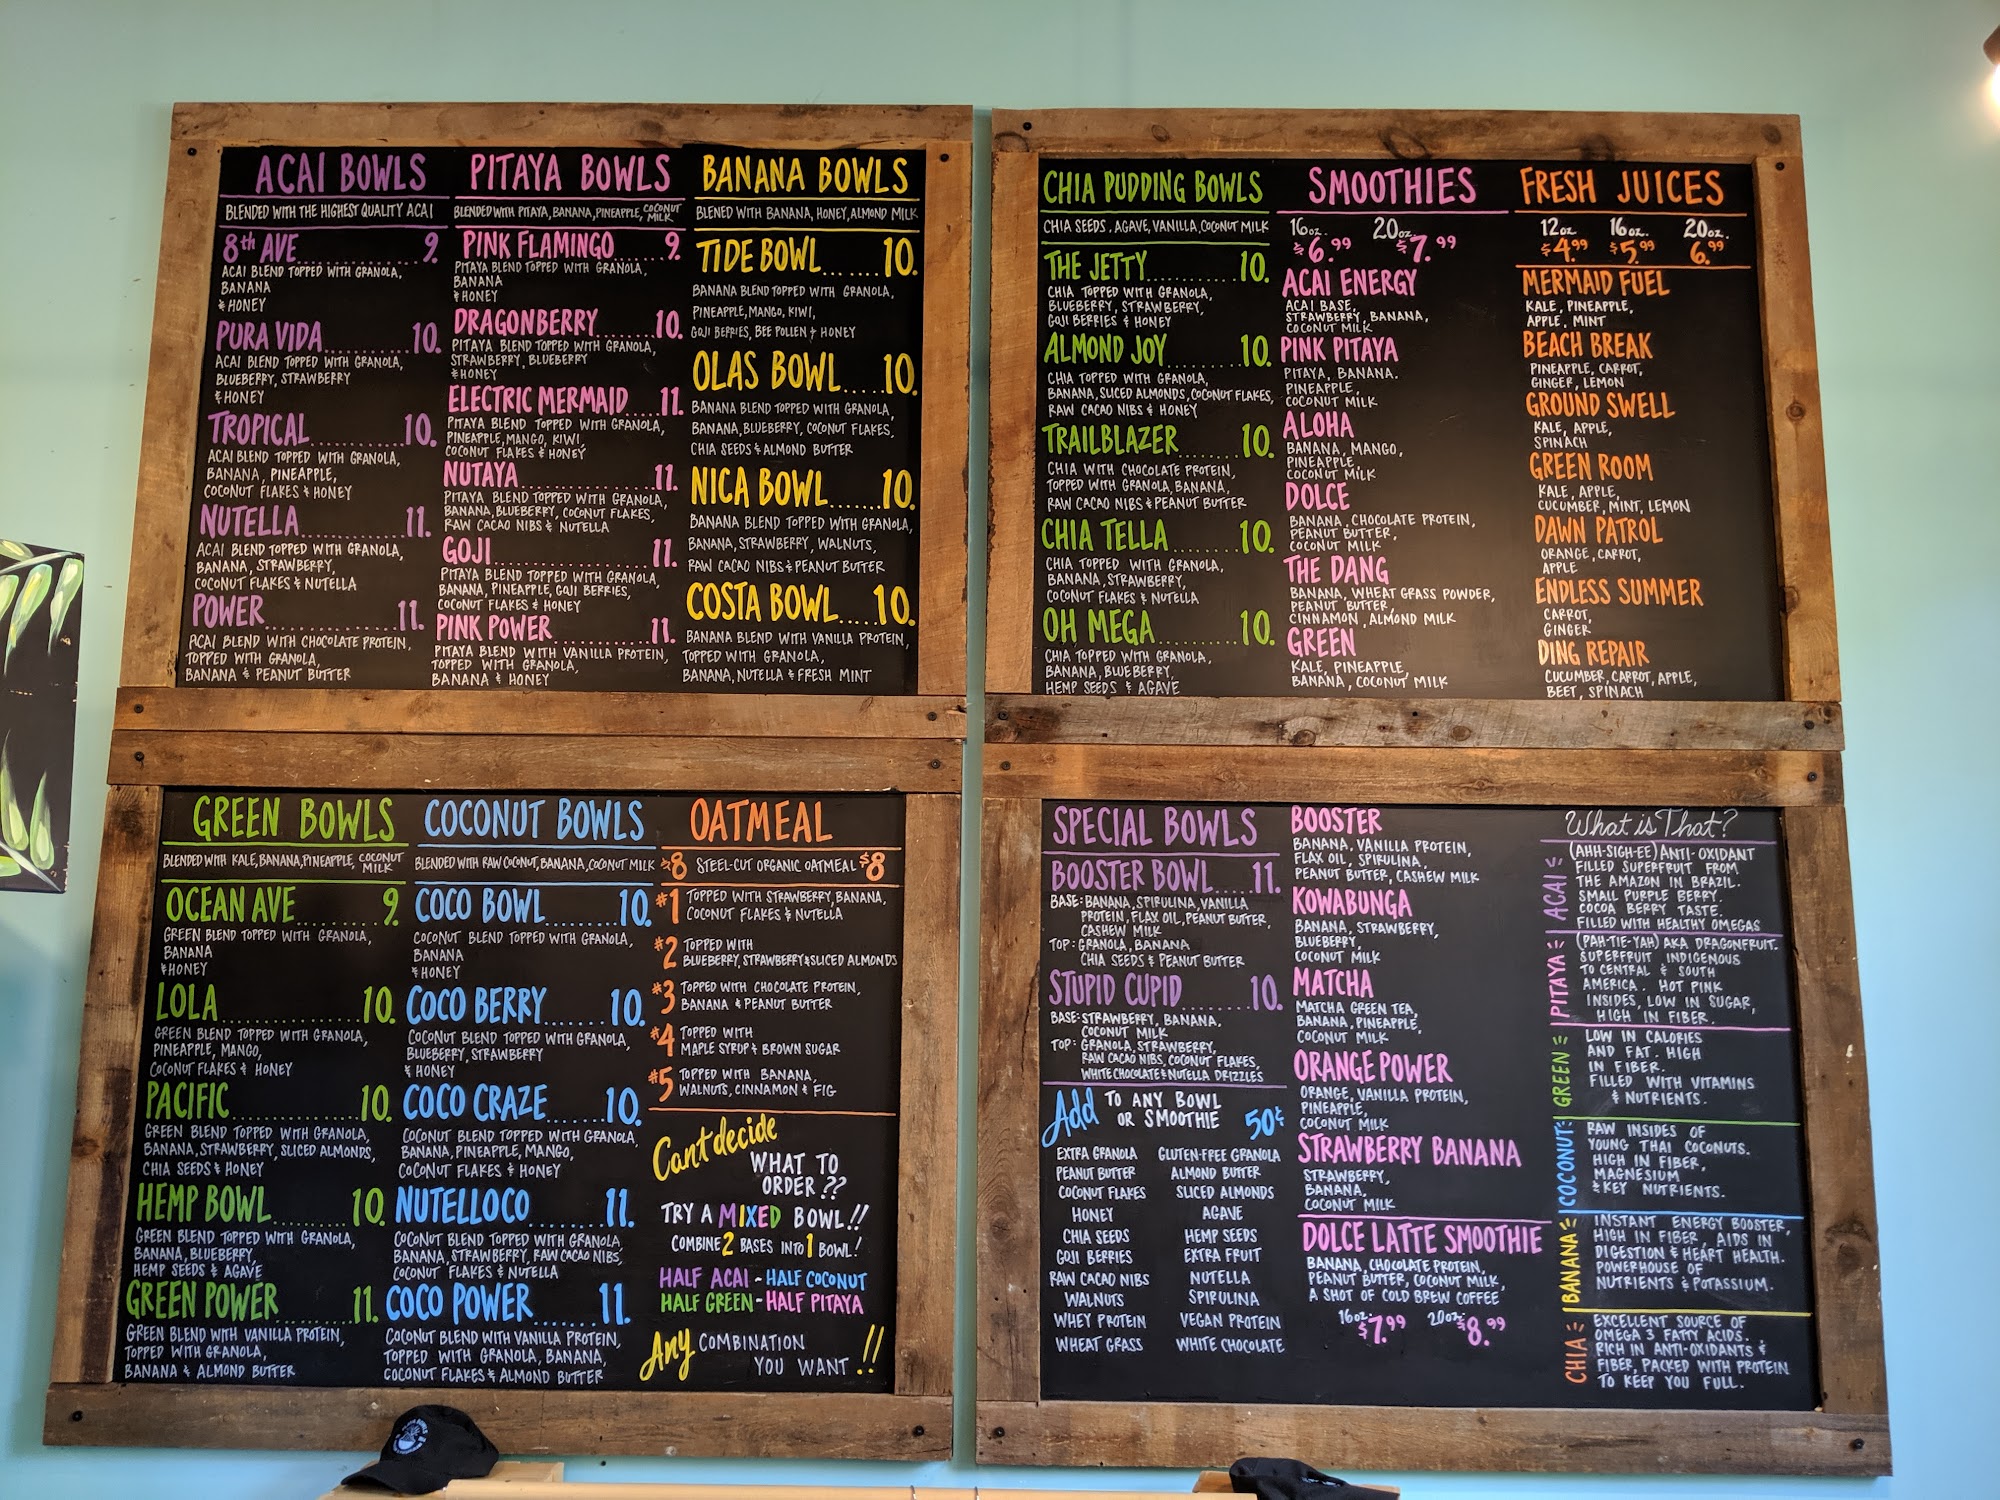 ACAI BOWLS
BLENDED WITH THE HIGHEST QUALITY ACAI
8th AVE 9.
ACAI BLEND TOPPED WITH GRANOLA,
BANANA
& HONEY
PURA VIDA 10.
ACAI BLEND TOPPED WITH GRANOLA,
BLUEBERRY, STRAWBERRY
& HONEY
TROPICAL 10.
ACAI BLEND TOPPED WITH GRANOLA,
BANANA, PINEAPPLE,
COCONUT FLAKES & HONEY
NUTELLA 11.
ACAI BLEND TOPPED WITH GRANOLA,
BANANA, STRAWBERRY,
COCONUT FLAKES & NUTELLA
POWER 11.
ACAI BLEND WITH CHOCOLATE PROTEIN,
TOPPED WITH GRANOLA,
BANANA & PEANUT BUTTER
PITAYA BOWLS
BLENDED WITH PITAYA, BANANA, PINEAPPLE, COCONUT MILK
PINK FLAMINGO 9.
PITAYA BLEND TOPPED WITH GRANOLA,
BANANA
& HONEY
DRAGONBERRY 10.
PITAYA BLEND TOPPED WITH GRANOLA,
STRAWBERRY, BLUEBERRY
& HONEY
ELECTRIC MERMAID 11.
PITAYA BLEND TOPPED WITH GRANOLA,
PINEAPPLE, MANGO, KIWI,
COCONUT FLAKES & HONEY
NUTAYA 11.
PITAYA BLEND TOPPED WITH GRANOLA,
BANANA, BLUEBERRY, COCONUT FLAKES,
RAW CACAO NIBS & NUTELLA
GOJI 11.
PITAYA BLEND TOPPED WITH GRANOLA,
BANANA, PINEAPPLE, GOJI BERRIES,
COCONUT FLAKES & HONEY
PINK POWER 11.
PITAYA BLEND WITH VANILLA PROTEIN,
TOPPED WITH GRANOLA,
BANANA & HONEY
BANANA BOWLS
BLENED WITH BANANA, HONEY, ALMOND MILK
TIDE BOWL 10.
BANANA BLEND TOPPED WITH GRANOLA,
PINEAPPLE, MANGO, KIWI,
GOJI BERRIES, BEE POLLEN & HONEY
OLAS BOWL 10.
BANANA BLEND TOPPED WITH GRANOLA,
BANANA, BLUEBERRY, COCONUT FLAKES,
CHIA SEEDS & ALMOND BUTTER
NICA BOWL 10.
BANANA BLEND TOPPED WITH GRANOLA,
BANANA, STRAWBERRY, WALNUTS,
RAW CACAO NIBS & PEANUT BUTTER
COSTA BOWL 10.
BANANA BLEND WITH VANILLA PROTEIN,
TOPPED WITH GRANOLA,
BANANA, NUTELLA & FRESH MINT
CHIA PUDDING BOWLS
CHIA SEEDS, AGAVE, VANILLA, COCONUT MILK
THE JETTY 10.
CHIA TOPPED WITH GRANOLA,
BLUEBERRY, STRAWBERRY,
GOJI BERRIES & HONEY
ALMOND JOY 10.
CHIA TOPPED WITH GRANOLA,
BANANA, SLICED ALMONDS, COCONUT FLAKES,
RAW CACAO NIBS & HONEY
TRAILBLAZER 10.
CHIA WITH CHOCOLATE PROTEIN,
TOPPED WITH GRANOLA, BANANA,
RAW CACAO NIBS & PEANUT BUTTER
CHIA TELLA 10.
CHIA TOPPED WITH GRANOLA,
BANANA, STRAWBERRY,
COCONUT FLAKES & NUTELLA
OH MEGA 10.
CHIA TOPPED WITH GRANOLA,
BANANA, BLUEBERRY,
HEMP SEEDS & AGAVE
SMOOTHIES
16oz. $6.99 20oz. $7.99
ACAI ENERGY
ACAI BASE,
STRAWBERRY, BANANA,
COCONUT MILK
PINK PITAYA
PITAYA, BANANA.
PINEAPPLE,
COCONUT MILK
ALOHA
BANANA, MANGO,
PINEAPPLE,
COCONUT MILK
DOLCE
BANANA, CHOCOLATE PROTEIN,
PEANUT BUTTER,
COCONUT MILK
THE DANG
BANANA, WHEAT GRASS POWDER,
PEANUT BUTTER,
CINNAMON, ALMOND MILK
GREEN
KALE, PINEAPPLE,
BANANA, COCONUT MILK
FRESH JUICES
12oz. 16oz. 20oz.
$4.99 $5.99 6.99
MERMAID FUEL
KALE, PINEAPPLE,
APPLE, MINT
BEACH BREAK
PINEAPPLE, CARROT,
GINGER, LEMON
GROUND SWELL
KALE, APPLE,
SPINACH
GREEN ROOM
KALE, APPLE,
CUCUMBER, MINT, LEMON
DAWN PATROL
ORANGE, CARROT,
APPLE
ENDLESS SUMMER
CARROT,
GINGER
DING REPAIR
CUCUMBER, CARROT, APPLE,
BEET, SPINACH
GREEN BOWLS
BLENDED WITH KALE, BANANA, PINEAPPLE, COCONUT MILK
OCEAN AVE 9.
GREEN BLEND TOPPED WITH GRANOLA,
BANANA
& HONEY
LOLA 10.
GREEN BLEND TOPPED WITH GRANOLA,
PINEAPPLE, MANGO,
COCONUT FLAKES & HONEY
PACIFIC 10.
GREEN BLEND TOPPED WITH GRANOLA,
BANANA, STRAWBERRY, SLICED ALMONDS,
CHIA SEEDS & HONEY
HEMP BOWL 10.
GREEN BLEND TOPPED WITH GRANOLA,
BANANA, BLUEBERRY,
HEMP SEEDS & AGAVE
GREEN POWER 11.
GREEN BLEND WITH VANILLA PROTEIN,
TOPPED WITH GRANOLA,
BANANA & ALMOND BUTTER
COCONUT BOWLS
BLENDED WITH RAW COCONUT, BANANA, COCONUT MILK
COCO BOWL 10.
COCONUT BLEND TOPPED WITH GRANOLA,
BANANA
& HONEY
COCO BERRY 10.
COCONUT BLEND TOPPED WITH GRANOLA,
BLUEBERRY, STRAWBERRY
& HONEY
COCO CRAZE 10.
COCONUT BLEND TOPPED WITH GRANOLA,
BANANA, PINEAPPLE, MANGO,
COCONUT FLAKES & HONEY
NUTELLOCO 11.
COCONUT BLEND TOPPED WITH GRANOLA,
BANANA, STRAWBERRY, RAW CACAO NIBS,
COCONUT FLAKES & NUTELLA
COCO POWER 11.
COCONUT BLEND WITH VANILLA PROTEIN,
TOPPED WITH GRANOLA, BANANA,
COCONUT FLAKES & ALMOND BUTTER
OATMEAL
$8 STEEL-CUT ORGANIC OATMEAL $8
#1 TOPPED WITH STRAWBERRY, BANANA,
COCONUT FLAKES & NUTELLA
#2 TOPPED WITH
BLUEBERRY, STRAWBERRY & SLICED ALMONDS
#3 TOPPED WITH CHOCOLATE PROTEIN,
BANANA & PEANUT BUTTER
#4 TOPPED WITH
MAPLE SYRUP & BROWN SUGAR
#5 TOPPED WITH BANANA,
WALNUTS, CINNAMON & FIG
Can't decide
WHAT TO
ORDER??
TRY A MIXED BOWL!!
COMBINE 2 BASES INTO 1 BOWL!
HALF ACAI - HALF COCONUT
HALF GREEN - HALF PITAYA
Any COMBINATION
YOU WANT!!
SPECIAL BOWLS
BOOSTER BOWL 11.
BASE: BANANA, SPIRULINA, VANILLA
PROTEIN, FLAX OIL, PEANUT BUTTER,
CASHEW MILK
TOP: GRANOLA, BANANA
CHIA SEEDS & PEANUT BUTTER
STUPID CUPID 10.
BASE: STRAWBERRY, BANANA,
COCONUT MILK
TOP: GRANOLA, STRAWBERRY,
RAW CACAO NIBS, COCONUT FLAKES,
WHITE CHOCOLATE & NUTELLA DRIZZLES
Add TO ANY BOWL
OR SMOOTHIE 50¢
EXTRA GRANOLA GLUTEN-FREE GRANOLA
PEANUT BUTTER ALMOND BUTTER
COCONUT FLAKES SLICED ALMONDS
HONEY AGAVE
CHIA SEEDS HEMP SEEDS
GOJI BERRIES EXTRA FRUIT
RAW CACAO NIBS NUTELLA
WALNUTS SPIRULINA
WHEY PROTEIN VEGAN PROTEIN
WHEAT GRASS WHITE CHOCOLATE
BOOSTER
BANANA, VANILLA PROTEIN,
FLAX OIL, SPIRULINA,
PEANUT BUTTER, CASHEW MILK
KOWABUNGA
BANANA, STRAWBERRY,
BLUEBERRY,
COCONUT MILK
MATCHA
MATCHA GREEN TEA,
BANANA, PINEAPPLE,
COCONUT MILK
ORANGE POWER
ORANGE, VANILLA PROTEIN,
PINEAPPLE,
COCONUT MILK
STRAWBERRY BANANA
STRAWBERRY,
BANANA,
COCONUT MILK
DOLCE LATTE SMOOTHIE
BANANA, CHOCOLATE PROTEIN,
PEANUT BUTTER, COCONUT MILK,
A SHOT OF COLD BREW COFFEE
16oz. $7.99 20oz. $8.99
What is That?
ACAI
(AHH-SIGH-EE) ANTI-OXIDANT
FILLED SUPERFRUIT FROM
THE AMAZON IN BRAZIL.
SMALL PURPLE BERRY.
COCOA BERRY TASTE.
FILLED WITH HEALTHY OMEGAS
PITAYA
(PAH-TIE-YAH) AKA DRAGONFRUIT.
SUPERFRUIT INDIGENOUS
TO CENTRAL & SOUTH
AMERICA. HOT PINK
INSIDES, LOW IN SUGAR,
HIGH IN FIBER.
GREEN
LOW IN CALORIES
AND FAT. HIGH
IN FIBER.
FILLED WITH VITAMINS
& NUTRIENTS.
COCONUT
RAW INSIDES OF
YOUNG THAI COCONUTS.
HIGH IN FIBER,
MAGNESIUM
& KEY NUTRIENTS.
BANANA
INSTANT ENERGY BOOSTER,
HIGH IN FIBER, AIDS IN
DIGESTION & HEART HEALTH.
POWERHOUSE OF
NUTRIENTS & POTASSIUM.
CHIA
EXCELLENT SOURCE OF
OMEGA 3 FATTY ACIDS.
RICH IN ANTI-OXIDANTS &
FIBER, PACKED WITH PROTEIN
TO KEEP YOU FULL.